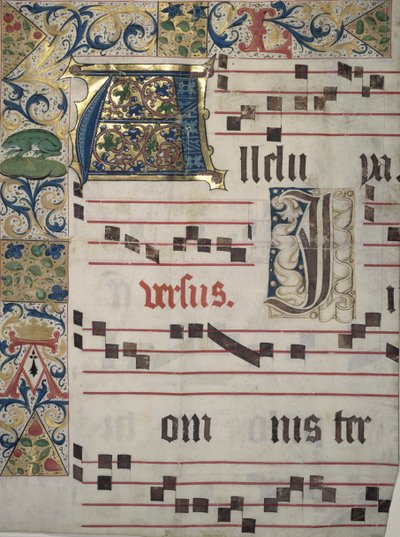 Allelu ya.
versus. I
om nis ter